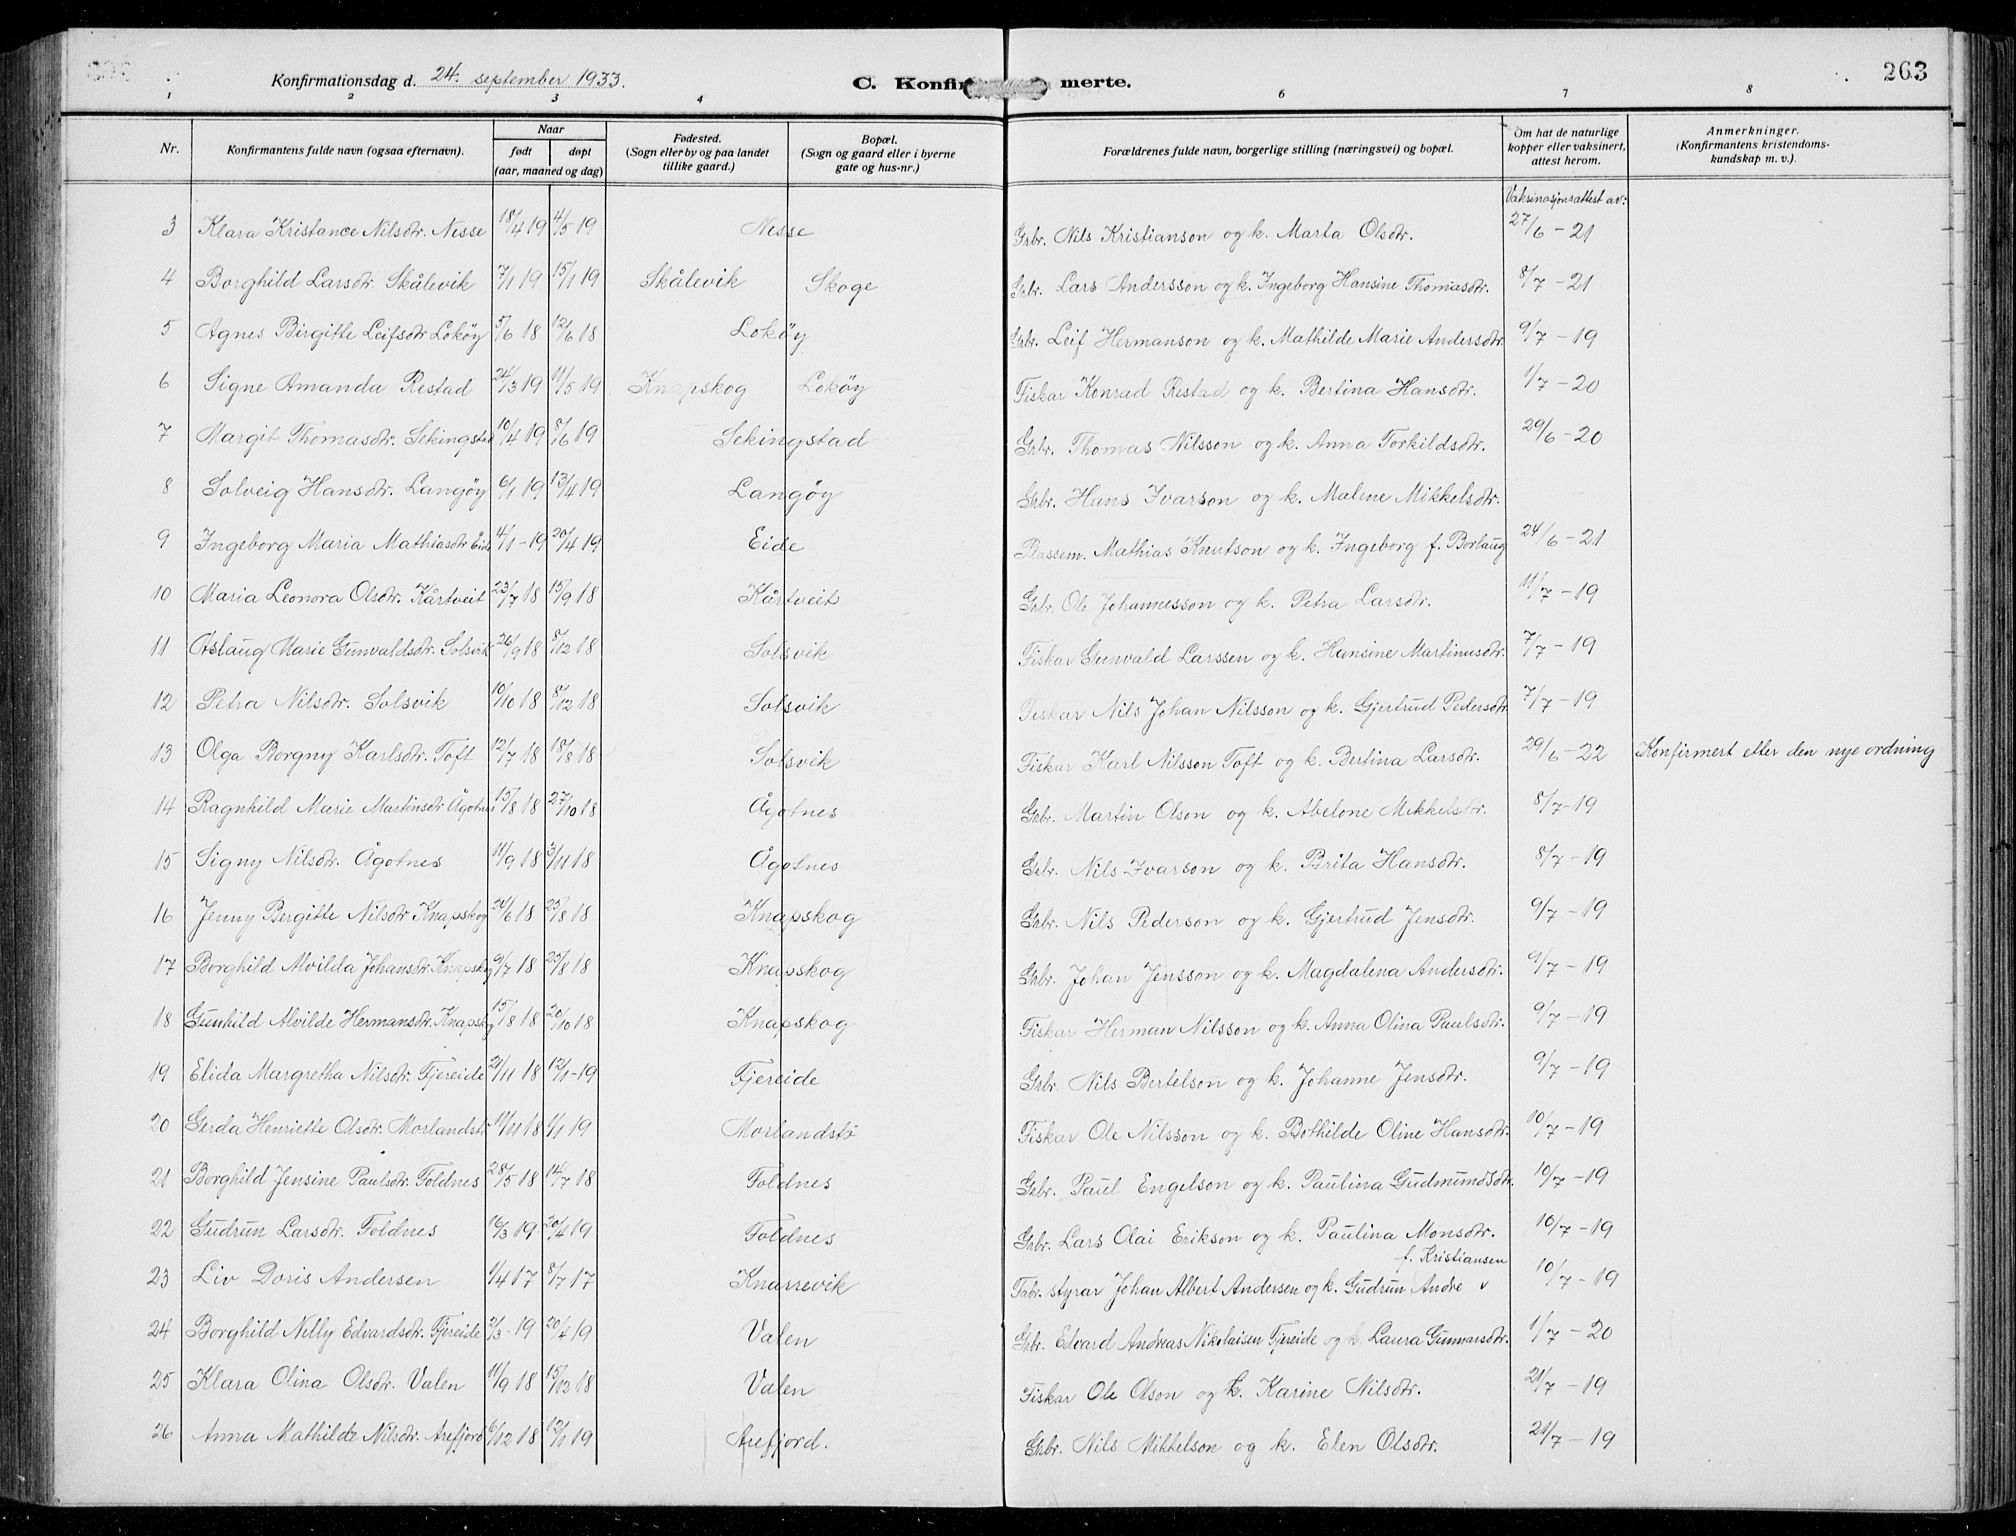 Konfirmationsdag d. 24. september 1933. C. Konfirmerte. 263
1 2 3 4 6 7 8
Nr. Konfirmantens fulde navn (ogsaa efternavn). Naar født døpt (aar, maaned og dag) Fødested. (Sogn eller by og paa landet tillike gaard.) Bopæl. (Sogn og gaard eller i byerne gate og hus-nr.) Forældrenes fulde navn, borgerlige stilling (næringsvei) og bopæl. Om hat de naturlige kopper eller vaksinert, attest herom. Anmerkninger. (Konfirmantens kristendoms-kundskap m. v.).
Vaksinasjonsattest av:
3 Klara Kristance Nilsdtr. Nesse 18/4 19 4/5 19 Nesse Gbr. Nils Kristianson og k. Marta Olsdtr. 27/6 - 21
4 Borghild Larsdtr. Skålevik 7/1 19 15/1 19 Skålevik Skoge Gbr. Lars Andersson og k. Ingeborg Hansine Thomasdtr. 8/7 - 21
5 Agnes Birgitte Leifsdtr Lokøy 5/6 18 12/6 18 Lokøy Gbr. Leif Hermanson og k. Mathilde Marie Andersdtr 9/7 - 19
6 Signe Amanda Restad 24/3 19 11/5 19 Knapskog Lokøy Fiskar Konrad Restad og k. Bertina Hansdtr. 1/7 - 20
7 Margit Thomasdtr. Sekingstad 10/4 19 8/6 19 Sekingstad Gbr. Thomas Nilsson og k. Anna Torkildsdtr. 29/6 - 20
8 Solveig Hansdtr. Langøy 6/1 19 13/4 19 Langøy Gbr. Hans Ivarson og k. Malene Mikkelsdtr.
9 Ingeborg Maria Mathiasdtr Eide 4/1 - 19 20/4 19 Eide Plassem. Mathias Knutson og k. Ingeborg f. Borlaug 24/6 - 21
10 Maria Leonora Olsdtr. Kårtveit 23/7 18 15/9 18 Kårtveit Gbr. Ole Johannesson og k. Petra Larsdtr. 11/7 - 19
11 Aslaug Marie Gunvaldsdtr. Solsvik 26/9 18 8/12 18 Solsvik Fiskar Gunvald Larssen og k. Hansine Martinusdtr. 7/7 - 19
12 Petra Nilsdtr. Solsvik 10/10 18 8/12 18 Solsvik Fiskar Nils Johan Nilsson og k. Gjertrud Pedersdtr 7/7 - 19
13 Olga Borgny Karlsdtr. Toft 12/7 18 18/8 18 Solsvik Fiskar Karl Nilsson Toft og k. Bertina Larsdtr. 29/6 - 22 Konfirmert etter den nye ordning
14 Ragnhild Marie Martinsdtr Ågotnes 15/8 18 27/10 18 Ågotnes Gbr. Martin Olson og k. Abelone Mikkelsdtr. 8/7 - 19
15 Signy Nilsdtr. Ågotnes 11/9 18 3/11 18 Ågotnes Gbr. Nils Ivarson og k. Brita Hansdtr. 8/7 - 19
16 Jenny Bergitte Nilsdtr Knapskog 20/6 18 25/8 18 Knapskog Gbr. Nils Pederson og k. Gjertrud Jensdtr. 9/7 - 19
17 Borghild Alvilda Johansdtr. Knapskog 9/7 18 25/8 18 Knapskog Gbr. Johan Jensson og k. Magdalena Andersdtr. 9/7 - 19
18 Gunhild Alvilde Hermansdtr. Knapskog 15/8 18 20/10 18 Knapskog Fiskar Herman Nilsson og k. Anna Olina Paulsdtr. 9/7 - 19
19 Elida Margretha Nilsdtr. Fjereide 21/11 18 12/1 - 19 Fjereide Gbr. Nils Bertelson og k. Johanne Jensdtr. 9/7 - 19
20 Gerda Henriette Olsdtr. Morlandstø 14/11 18 1/1 19 Morlandstø Fiskar Ole Nilsson og k. Bothilde Oline Hansdtr. 10/7 - 19
21 Borghild Jensine Paulsdtr. Foldnes 28/5 18 14/7 18 Foldnes Gbr. Paul Engelson og k. Paulina Gudmundsdtr. 10/7 - 19
22 Gudrun Larsdtr. Foldnes 16/3 19 20/4 19 Foldnes Gbr. Lars Olai Erikson og k. Paulina Monsdtr. 10/7 - 19
f. Kristiansen
23 Liv Doris Andersen 1/4 17 8/7 17 Knarrevik Fabr. styrar Johan Albert Andersen og k. Gudrun Andre v 10/7 - 19
24 Borghild Nelly Edvardsdtr. Fjereide 2/3 - 19 20/4 19 Valen Gbr. Edvard Andreas Nikolaisen Fjereide og k. Laura Gunnarsdtr. 1/7 - 20
25 Klara Olina Olsdtr. Valen 11/9 18 15/12 18 Valen Fiskar Ole Olson og k. Karine Nilsdtr. 21/7 - 19
26 Anna Mathilde Nilsdtr. Arefjord 6/12 18 12/1 19 Arefjord. Gbr. Nils Mikkelson og k. Elen Olsdtr. 21/7 - 19